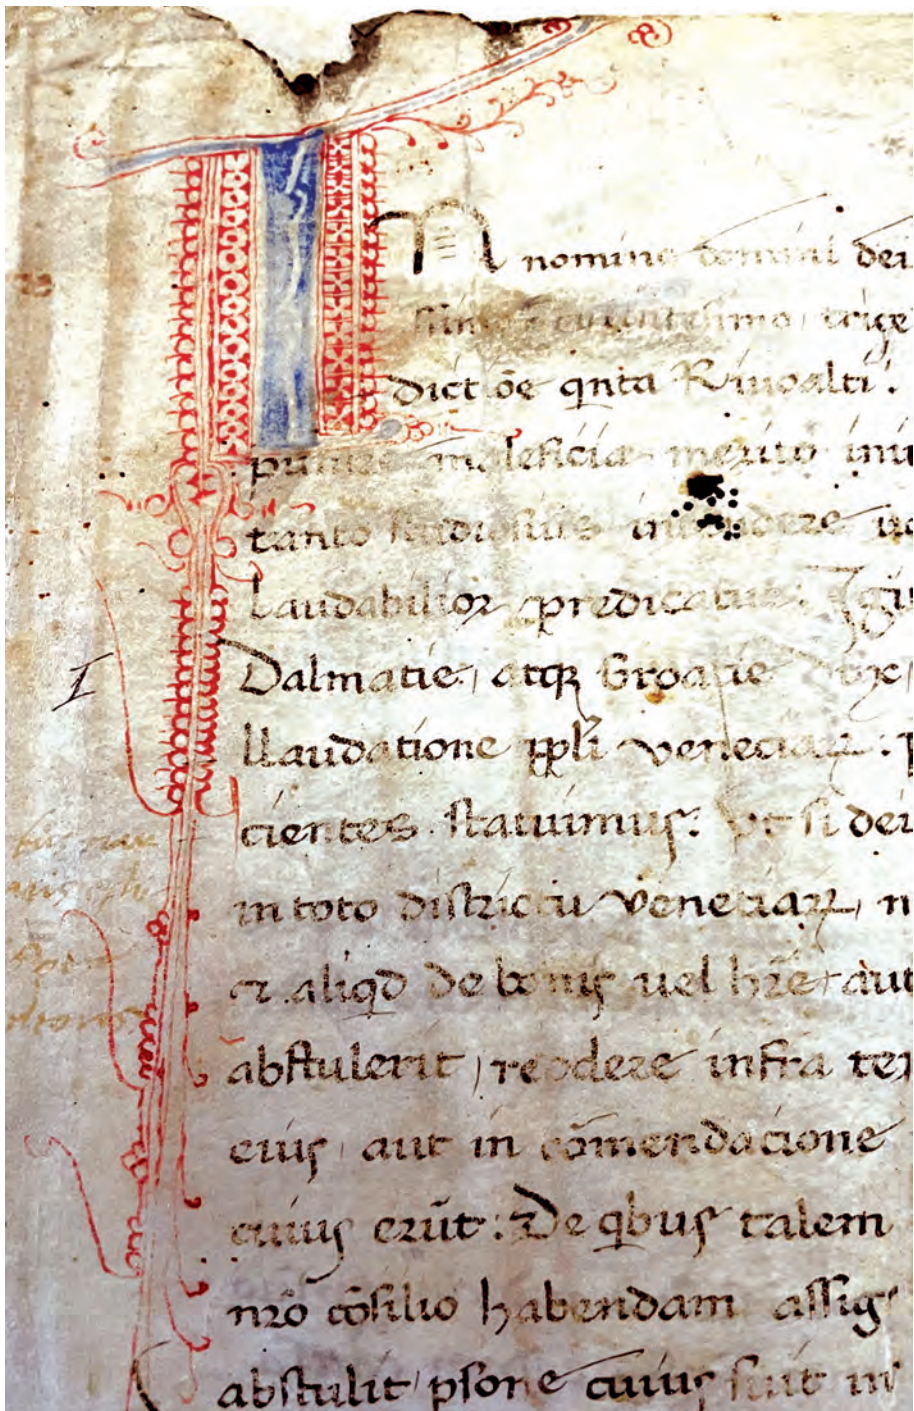 N nomine domini dei
simo ducentesimo trige
dictōe qnta Rivoalti.
punire maleficia merito
tanto studiosius
Laudabilior predicatur. Igi
Dalmatie, atqꝫ Croatie Dux,
llaudatione ppli veneciaꝝ: p
cientes statuimus: Ut si dei
in toto districtu Veneciaꝝ, n
aliqd de bonis uel hr̄e aut
abstulerit, reddere infra ter
eius, aut in cōmendacione
cuius erūt: De qbus talem
nr̄o cōsilio habendam assig
abstulit psone cuius sint in
I